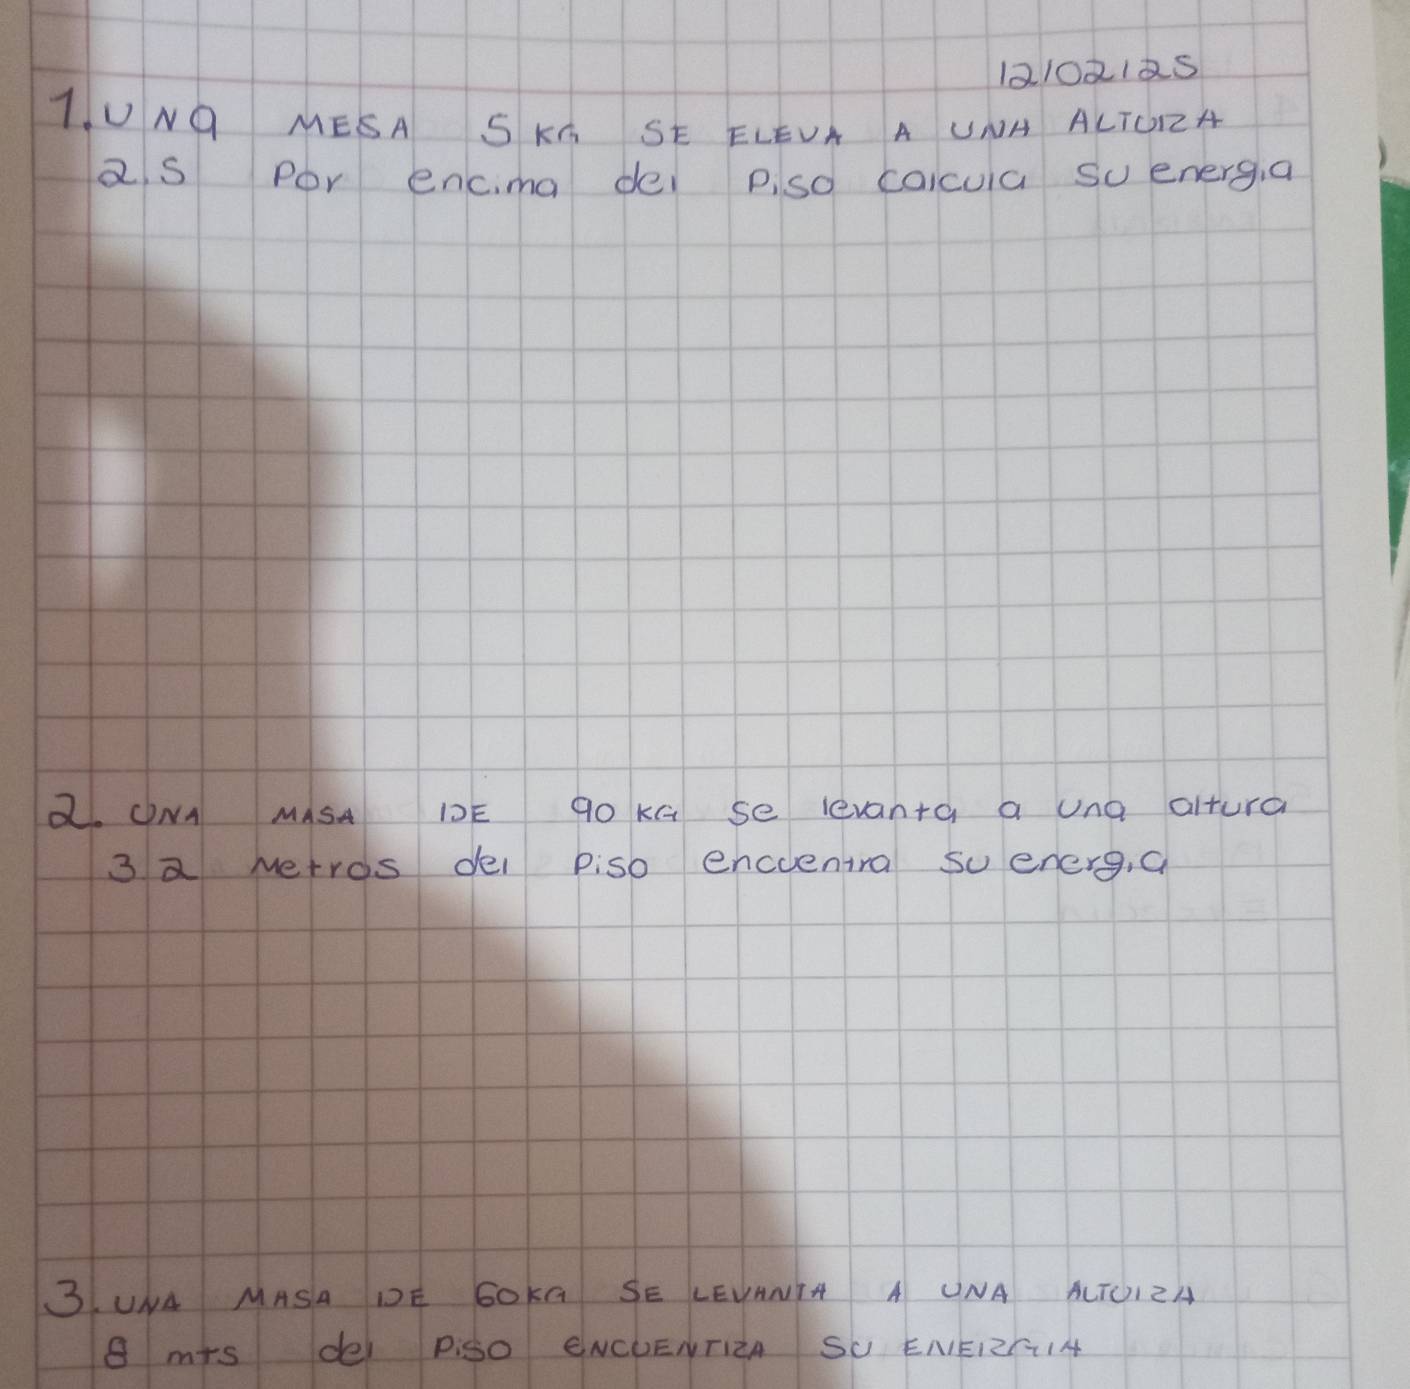 12/02/25
1. UNA MESA 5 KG SE ELEVA A UNA ALTURA
2.5 Por encima del Piso calcula su energia
2. UNA MASA DE 90 KG se levanta a una altura
3.2 Metros del Piso encuentra su energia
3. UNA MASA DE 60KG SE LEVANTA A UNA ALTURA
8 mts del Piso ENCUENTRA SU ENERGIA